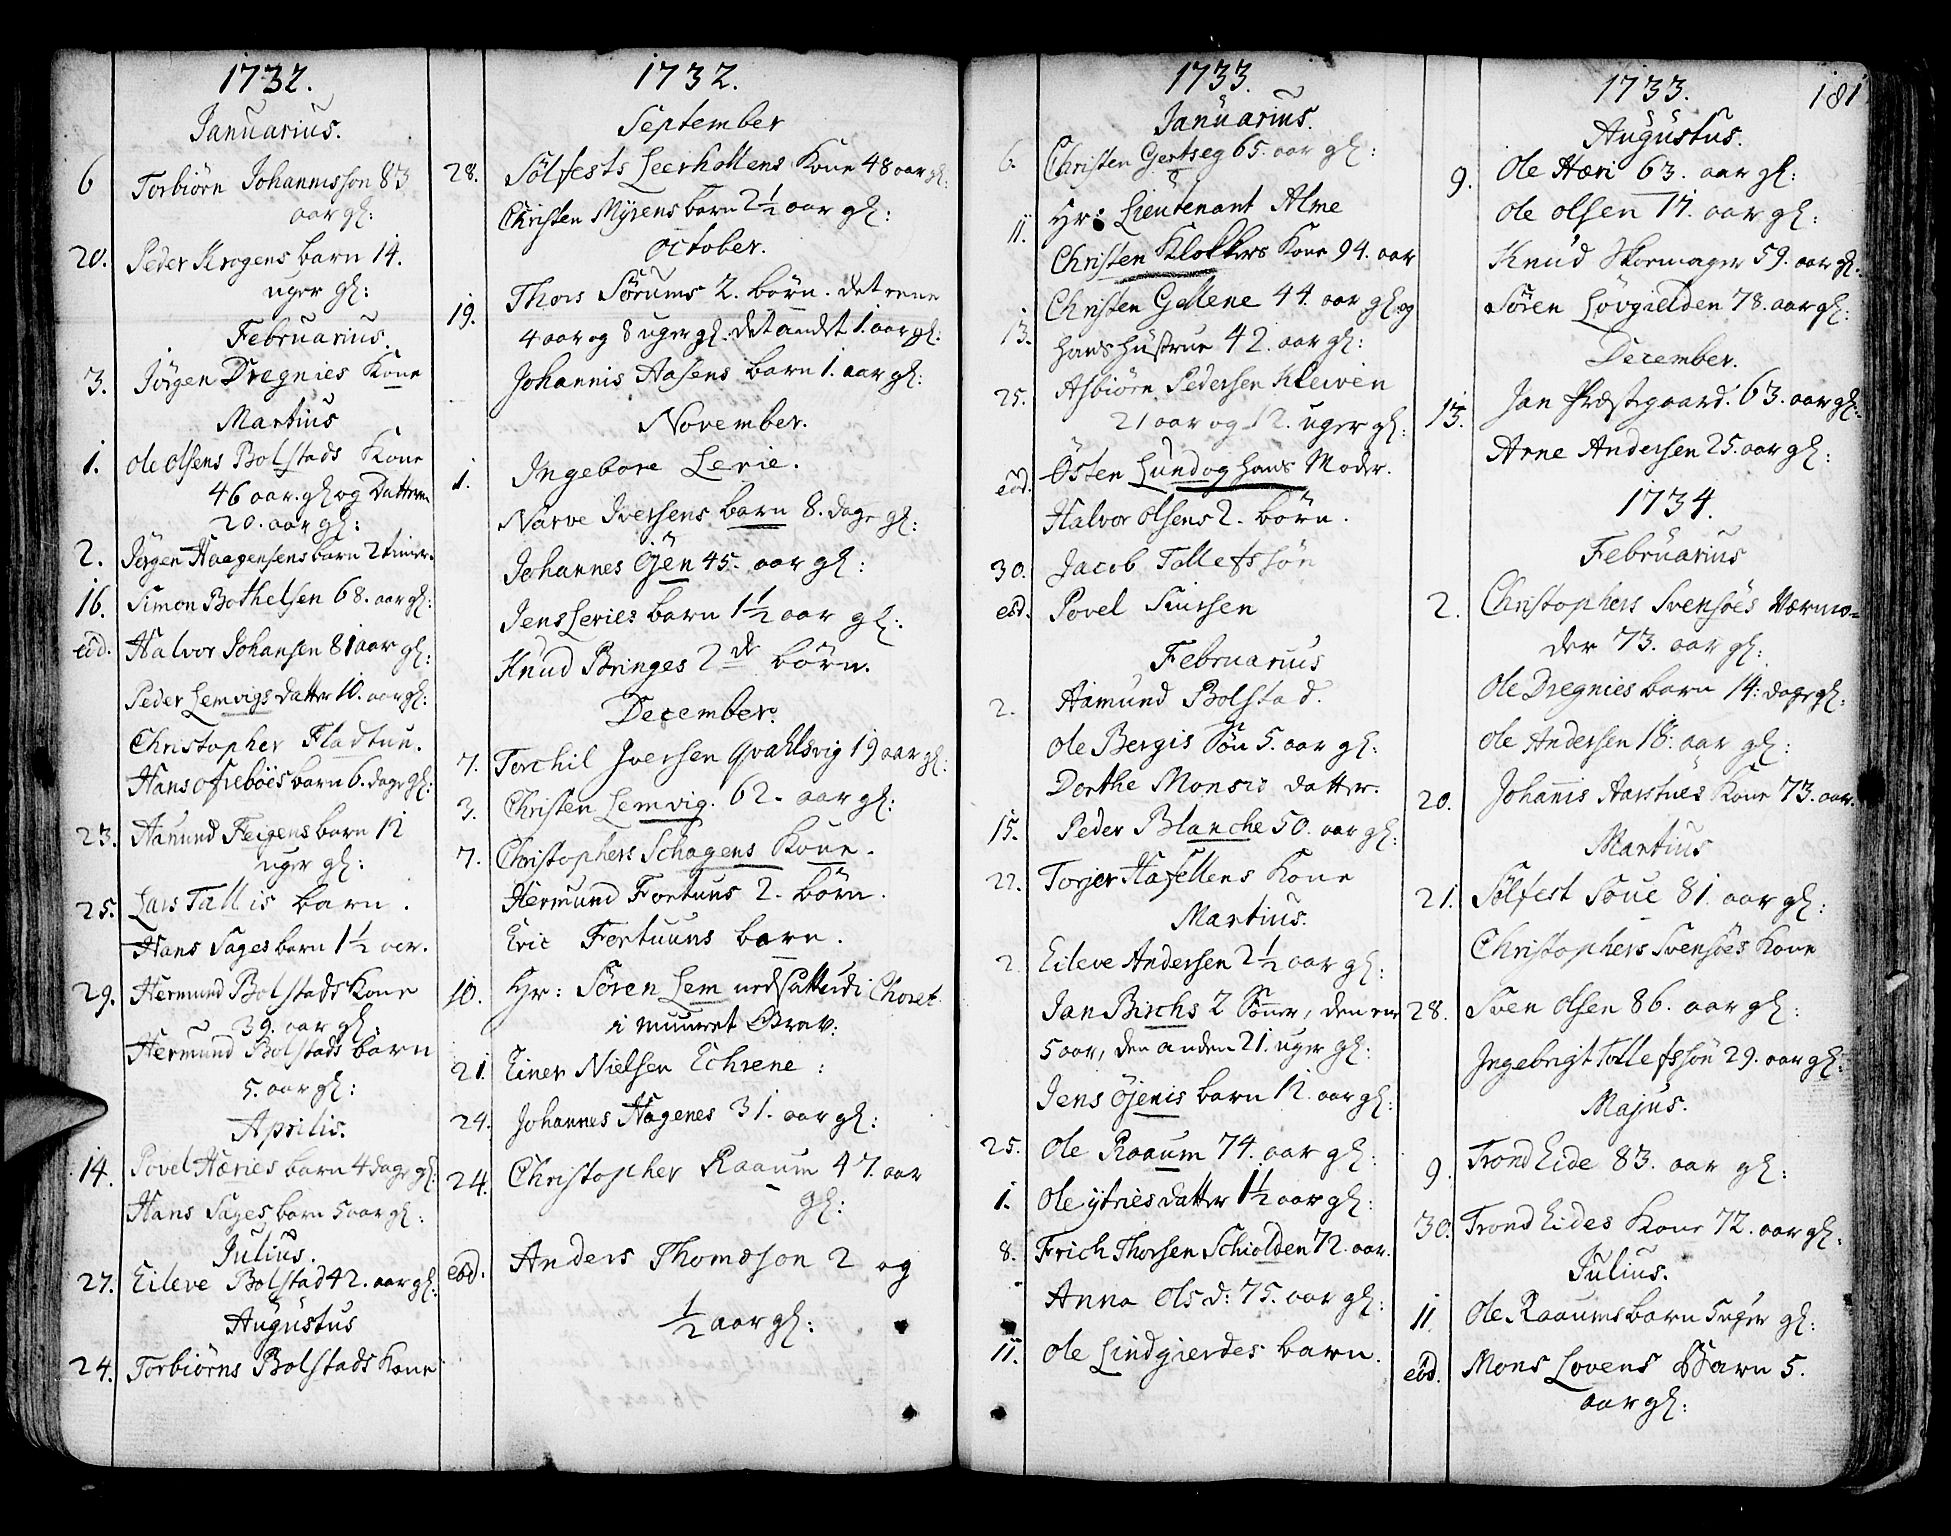 1732.
Januarius.
6 Torbiörn Johannisson 83
aar gl:
20. Peder Krogens barn 14.
uger gl:
Februarius.
3. Jörgen Dregnies Kone
Martius
1. Ole Olsens Bolstads Kone
46 aar. gl og Datteren
20. aar gl:
2. Jörgen Haagensens barn 2 timer.
16. Simon Bothelsen 68. aar gl:
eod. Halvor Johansen 81 aar gl:
Peder Lemvigs datter 10. aar gl:
Christopher Fladtun.
Hans Ofreböes barn 6. dage gl:
23. Hamund Feigens barn 12
uger gl:
25. Lars Tallis barn.
Hans Sages barn 1½ aar.
29. Hermund Bolstads Kone
39. aar gl.
Hermund Bolstads barn
5. aar gl:
Aprilis.
14. Povel Hæries barn 4 dage gl:
Hans Sages barn 5 aar gl:
Julius.
27. Eileve Bolstad 42. aar gl:
Augustus
24. Torbiörns Bolstads Kone
1732.
September
28. Sölfests Leerhollens Kone 48 aar gl:
Christen Myrens barn 2½ aar gl:
October.
19. Thors Sörums 2. börn. det eene
4 aar og 8 uger gl: det andet 1. aar gl:
Johannis Aasens barn 1. aar gl:
November.
1. Ingebore Lerie.
Narve Iversens barn 8. dage gl:
Johannes Öjen 45. aar gl:
Jens Leries barn 1½ aar gl:
Knud Bringes 2de börn.
December.
7. Torchil Iversen Qvahlsvig 19 aar gl:
3. Christen Lemvig. 62. aar gl:
7. Christophers Schagens Kone.
Hermund Fortuns 2. börn.
Eric Fortuuns barn.
10. Hr: Sören Lem nedsatt udi Choret
i muuret Grav:
21. Einer Nielsen Echrene:
24. Johannes Hagenes 31. aar gl:
24. Christopher Raaum 47. aar
gl:
eod. Anders Thomosson 2 og
½ aar gl:
1733.
Januarius.
6. Christen Gertseg 65. aar gl:
11. Hr: Lieutenant Alme
Christen Klokkers Kone 94. aar
13. Christen Gellene 44. aar gl og
hans hustrue 42. aar gl:
25. Asbiörn Pedersen Kleiven
21 aar og 12. uger gl:
eod. Östen Lund og hans Moder.
Halvor Olsens 2. börn.
30. Jacob Tollefssön
eod. Povel Siursen
Februarius
2. Hamund Bolstad.
Ole Bergis Sön 5. aar gl:
Dorthe Monsis datter.
15. Peder Blanche 50. aar gl:
22. Torjer Hafellens Kone
Martius.
2 Eileve Andersen 2½ aar gl:
Jan Birchs 2 Sönner, den ene
5 aar, den anden 21. uger gl:
Jens Öjenis barn 12. aar gl:
25. Ole Raaum 74. aar gl:
1. Ole ytries datter 1½ aar gl:
8. Frich Thorsen Schiolden 72. aar.
Anna Ols d: 75. aar gl:
11. Ole Lindgierdes barn.
1733.
181
Augustus.
9. Ole Hæri 63. aar gl:
Ole Olsen 17. aar gl:
Knud Skormager 59. aar gl.
Sören Lövgielden 78. aar gl:
December.
13. Jan Præstegaard. 63. aar gl:
Arne Andersen 25. aar gl:
1734.
Februarius
2. Christophers Svensöes Værmo=
der 73. aar gl:
Ole Dregnies barn 14: dage gl:
Ole Andersen 18: aar gl:
20. Johannis Aarstues Kone 73. aar.
Martius
21. Sölfest Soue 81. aar gl:
Christophers Svensöes Kone
28. Sven Olsen 86. aar gl:
Ingebrigt Tollefssön 29. aar gl:
Majus.
9. Trond Eide 83. aar gl:
30. Trond Eides Kone 72. aar gl.
Julius.
11. Ole Raaums barn 5 uger gl:
eod. Mons Lovens Barn 5.
aar gl: